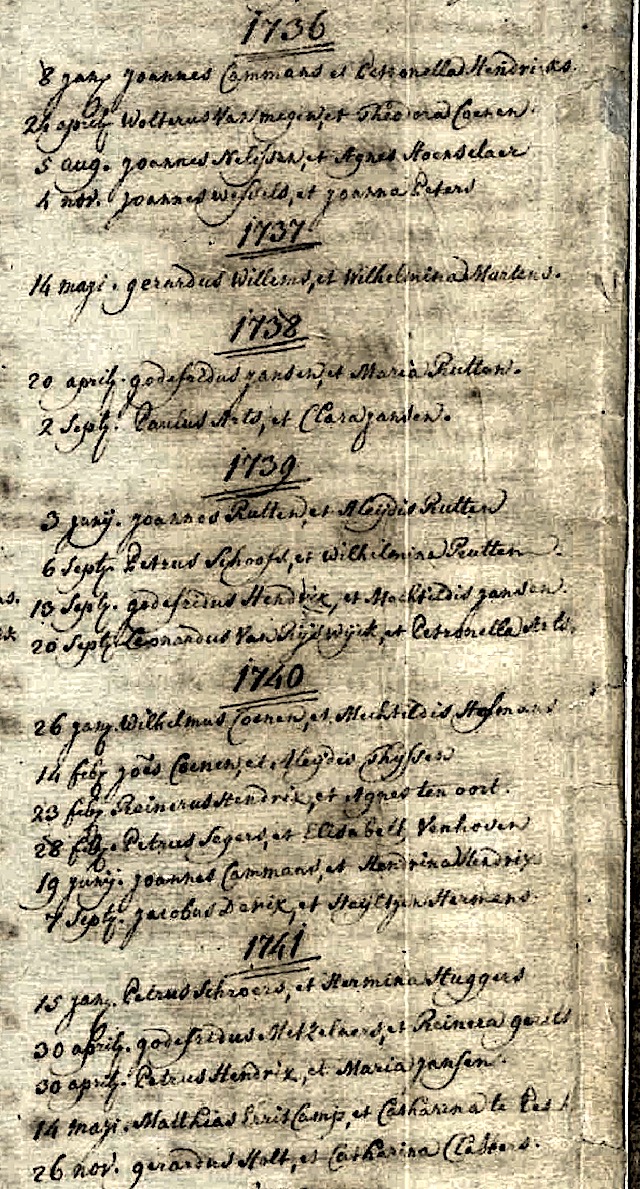 1736
8 janȷ. Joannes Cammans et Petronella Hendricks
24 aprilȷ. Wolterus Van megen, et Theodora Coenen.
5 aug. Joannes Nelissen, et Agnes Hoenselaer
4 nov. Joannes Wessels, et Joanna Peters
1737
14 maji. gerardus Willems, et Wilhelmina Martens.
1738
20 aprilȷ. godefridus Jansen, et Maria Rutten.
2 Septȷ. Paulus Arts, et Clara Jansen.
1739
3 junij. Joannes Rutten, et Aleÿdis Rutten
6 Septȷ. Petrus Schoofs, et Wilhelmina Rutten
13 Septȷ. godefridus Hendrix, et Mechtildis Jansen.
20 Septȷ. Leonardus Van Rÿswÿck, et Petronella Arts.
1740
26 janȷ. Wilhelmus Coenen, et Mechtildis Hofmans
14 febȷ. Joes Coenen, et Aleÿdis Thÿssen
23 febȷ. Reinerus Hendrix, et Agnes ten oort.
28 febȷ. Petrus Segers, et Elisabeth Venhoven
19 junij. Joannes Cammans, et Hendrina Hendrix
7 Septȷ. Jacobus Derix, et Heÿltjen Hermens.
1741
15 janȷ. Petrus Schroers, et Hermina Huggers
30 aprilȷ. godefridus Metzelaers, et Reinera
30 aprilȷ. Petrus Hendrix, et Maria Jansen.
14 maji. Matthias Camp, et Catharina te
26 nov. gerardus Holt, et Catharina